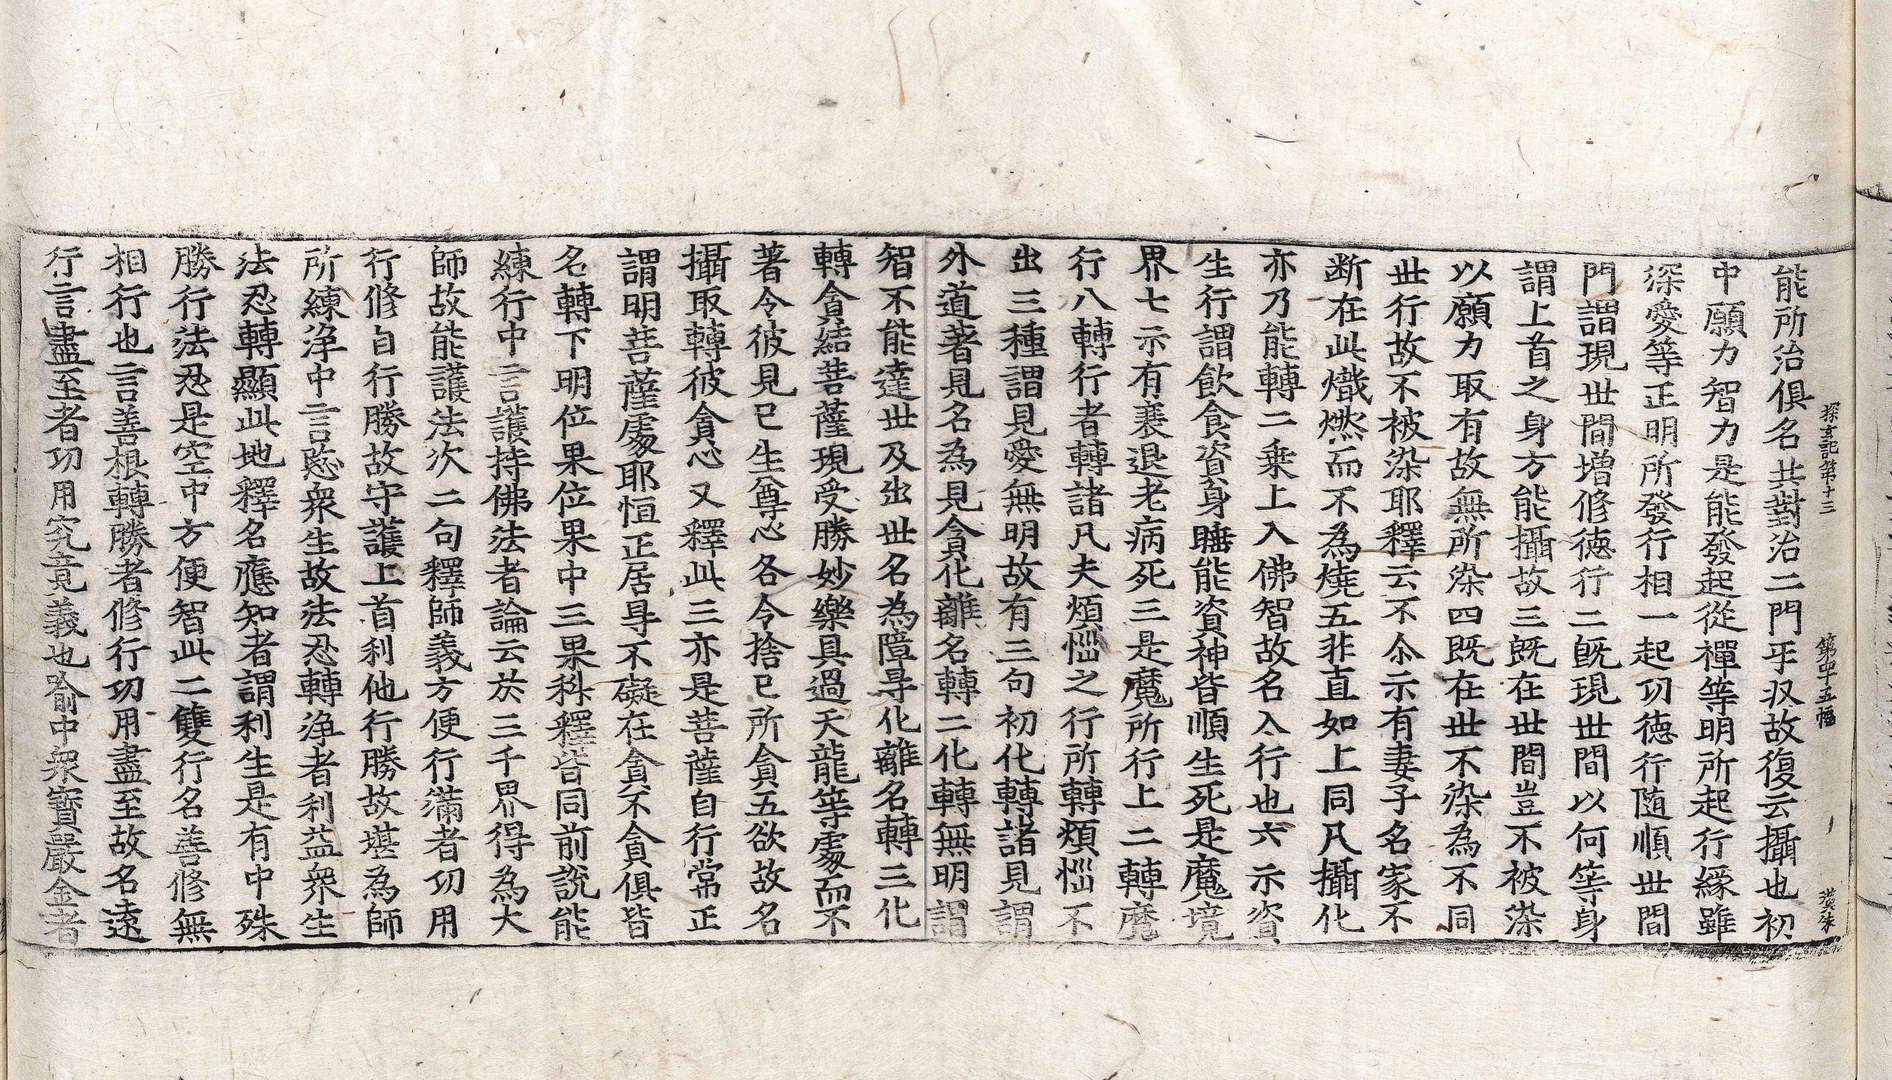 探玄記第十三　第中五幅　璞朱
能所治俱名共對治二門平〻故復云攝也初
中願力智力是能發起從禪等明所起行緣雖
深愛等正明所發行相一起功德行随順世間
門謂現世間增修徳行二既現世間以何等身
謂上首之身方能攝故三既在世間豈不被染
以願力取有故無所染四既在世不染為不同
世行故不被染耶釋云不尒示有妻子名家不
断在此熾燃而不為燒五非直如上同凡攝化
亦乃能轉二乗上入佛智故名入行也六示資
生行謂飲食資身睡能資神皆順生死是魔境
界七示有衰退老病死三是魔所行上二轉魔
行八轉行者轉諸凡夫煩惱之行所轉煩惱不
出三種謂見愛無明故有三句初化轉諸見謂
外道著見名為見貪化離名轉二化轉無明謂
智不能達世及出世名為障㝵化離名轉三化
轉貪結菩薩現受勝妙樂具過天龍等處而不
著令彼見已生尊心各令捨已所貪五欲故名
攝取轉彼貪心又釋此三亦是菩薩自行常正
謂明菩薩處耶恒正居身不礙在貪不貪俱皆
名轉下明位果位果中三果科釋皆同前說能
練行中言護持佛法者論云於三千界得為大
師故能護法次二句釋師義方便行滿者功用
行修自行勝故守護上首利他行勝故堪為師
所練淨中言愍衆生故法忍轉淨者利益衆生
法忍轉顯此地釋名應知者謂利生是有中殊
勝行法忍是空中方便智此二雙行名善修無
相行也言善根轉勝者修行功用盡至故名遠
行言盡至者功用究竟義也喻中衆寶嚴金者